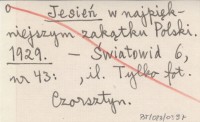 Jesień w najpięk-
niejszym zakątku Polski.
1929. – Światowid 6,
nr 43: , il. Tylko fot.
Czorsztyn.